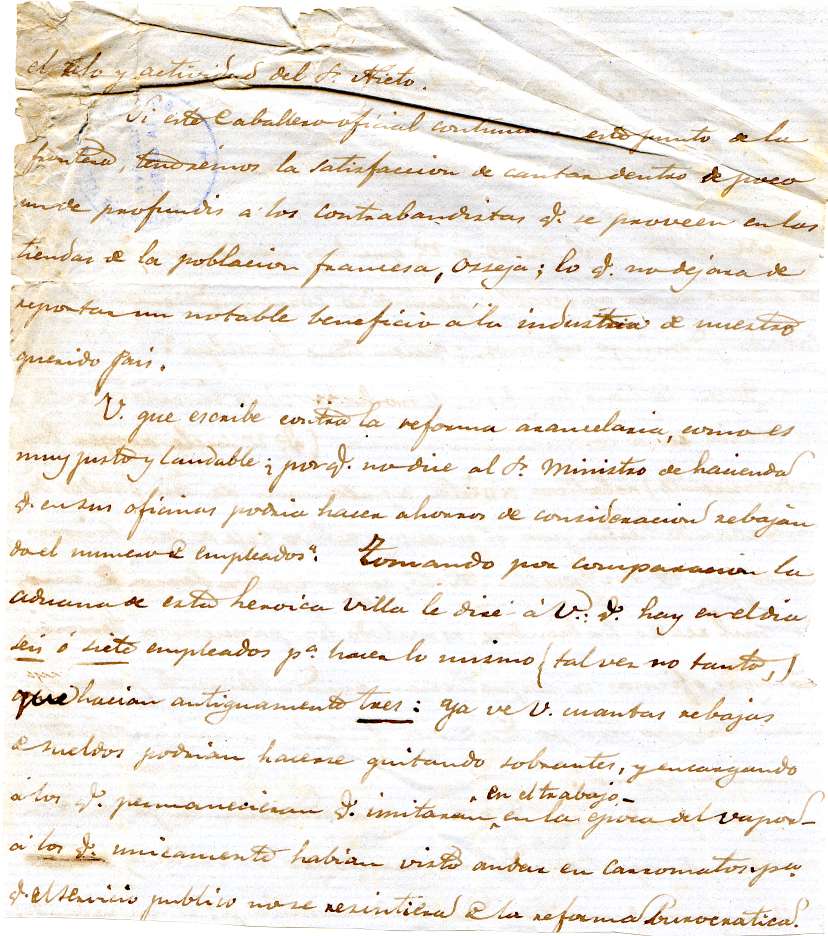 el celo y actividad del Sr. Nieto.
Si este Caballero oficial continua este punto de la
frontera, tendremos la satisfaccion de cantar dentro de poco
un de profundis á los contrabandistas q. se proveen en las
tiendas de la poblacion francesa, Osseja; lo q. no dejara de
reportar un notable beneficio á la industria de nuestro
querido pais.
V. que escribe contra la reforma arancelaria, como es
muy justo y laudable; porq. no dice al Sr. Ministro de hacienda
q. en sus oficinas podria hacer ahorros de consideracion rebajan
do el numero de empleados? Tomando por comparacion la
aduana de esta heroica villa le diré á V.: q. hay en el dia
seis ó siete empleados pa. hacer lo mismo (tal vez no tanto,)
que hacian antiguamente tres: ya ve V. cuantas rebajas
de sueldos podrian hacerse quitando sobrantes, y encargando
á los q. permanecieran q. imitaran en el trabajo en la epoca del vapor
á los q. unicamente habian visto andar en carromatos pa.
q. el servicio publico no se resintiera de la reforma burocratica.